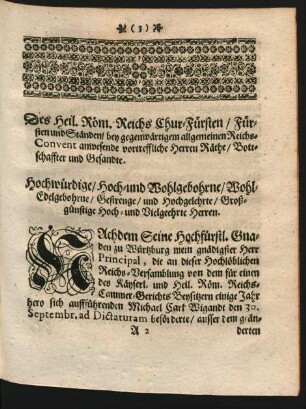 ( 3 )
Des Heil. Röm. Reichs Chur-Fürsten / Für-
sten und Ständen / bey gegenwärtigem allgemeinen Reichs-
Convent anwesende vortreffliche Herren Räthe / Bott-
schaffter und Gesandte.
Hochwürdige / Hoch- und Wohlgebohrne / Wohl-
Edelgebohrne / Gestrenge / und Hochgelehrte / Groß-
günstige Hoch- und Vielgeehrte Herren.
NAchdem Seine Hochfürstl. Gna-
den zu Würtzburg mein gnädigster Herr
Principal, die an dieser Hochlöblichen
Reichs-Versamblung von dem für einen
des Käyserl. und Heil. Röm. Reichs-
Cammer-Gerichts Beysitzern einige Jahr
hero sich aufführenden Michael Carl Wigandt den 30.
Septembr. ad Dictaturam beförderte / ausser dem geän-
A 2 derten